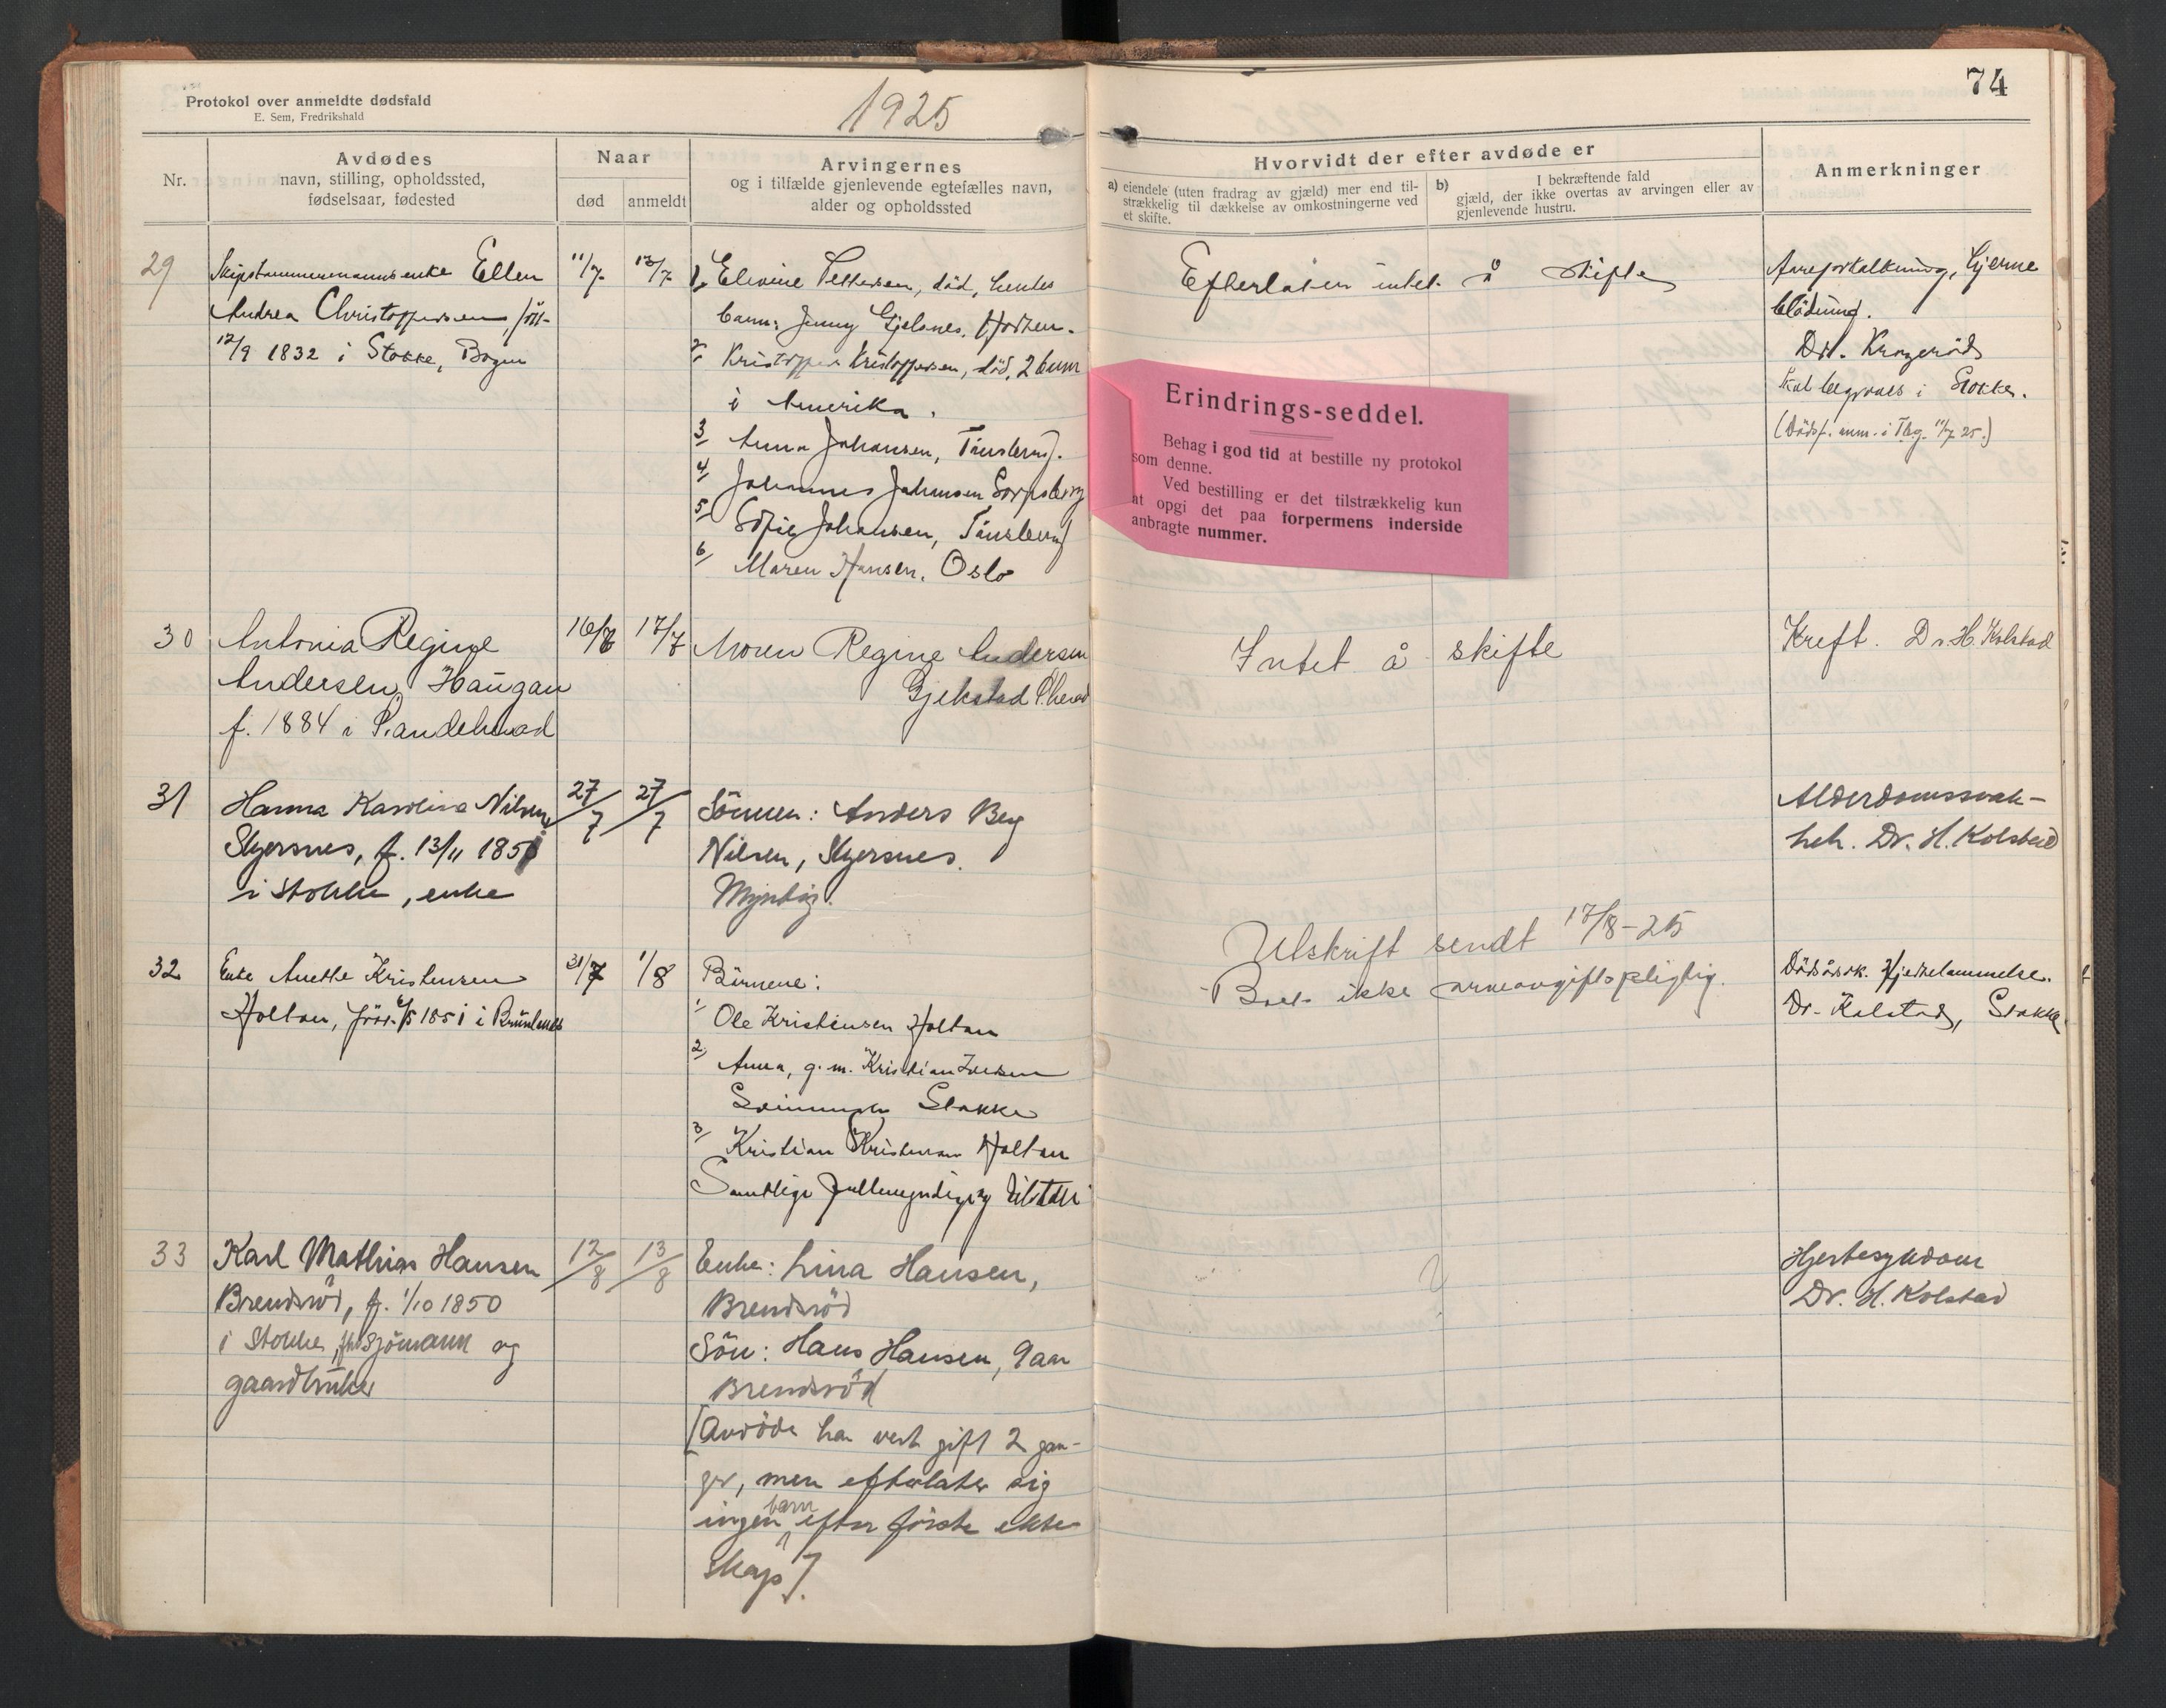 74
Protokol over anmeldte dødsfald
E. Sem, Fredrikshald
1925
Nr.
Avdødes
navn, stilling, opholdssted,
fødselsaar, fødested
Naar
død
anmeldt
Arvingernes
og i tilfælde gjenlevende egtefælles navn,
alder og opholdssted
Hvorvidt der efter avdøde er
a) eiendele (uten fradrag av gjæld) mer end til-
strækkelig til dækkelse av omkostningerne ved
et skifte.
b) I bekræftende fald
gjæld, der ikke overtas av arvingen eller av
gjenlevende hustru.
Anmerkninger
29
Skipstømmermannsenke Ellen
Andrea Christoffersen, född
12/9 1832 i Stokke, Bogen
11/7. 13/7
1, Elevine Pettersen, död,
barn: Jenny Gjelsnes, Horten.
2, Kristoffer Kristoffersen, död, 2 barn
i Amerika.
3, Anna Johansen, Tönsberg.
4, Johannes Johansen Sarpsborg
5, Sofie Johansen, Tönsberg
6, Maren Hansen, Oslo
Efterlater intet å skifte
Aareforkalkning, Hjerne
blödning.
Dr. Krageröd
Skal begraves i Stokke.
(Dödsf. anm. i Tbg. 11/7 25.)
Erindrings-seddel.
Behag i god tid at bestille ny protokol
som denne.
Ved bestilling er det tilstrækkelig kun
at opgi det paa forpermens inderside
anbragte nummer.
30
Antonia Regine
Andersen, Haugan
f. 1884 i Sandeherad
16/7 17/7
Moren Regine Andersen
Gjekstad S.herad
Intet å skifte
Kreft. Dr. H. Kolstad
31
Hanna Karolina Nilsen,
Skjersnes, f. 13/11 185
i Stokke, enke
27/7 27/7
Sönnen: Anders Berg
Nilsen, Skjersnes.
Myndig.
Alderdomssvak-
heh. Dr. H. Kolstad
32
Enke Anette Kristensen
Holtan, född 1851 i Brunlanes
31/7 1/8
Börnene:
1, Ole Kristensen Holtan
2, Anna, g. m. Kristian
Stokke
3, Kristian Kristensen Holtan
Samtlige fuldmyndige og tilstede
Utskrift sendt 17/8-25
Boet ikke arveavgiftspligtig.
Dödsårsak. Hjertelammelse.
Dr. Kolstad, Stokke.
33
Karl Mathias Hansen
Brendsröd, f. 1/10 1850
i Stokke, fhv sjömann og
gaardbruker
12/8 13/8
Enke: Lina Hansen,
Brendsröd
Sön: Hans Hansen, 9 aar
Brendsröd
[Avdöde har vert gift 2 gan-
ger, men efterlater sig
ingen barn efter förste ekte-
skap].
Hjertesykdom
Dr. H. Kolstad